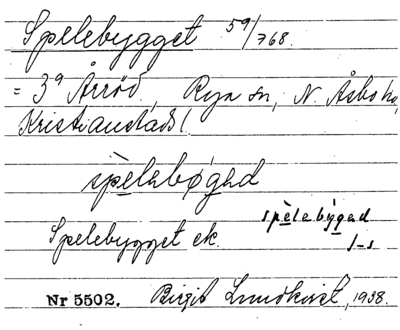 Spelebygget 59/768.
= 3ª Årröd, Rya sn, N. Åsbo hd,
Kristianstads l.
spèlebǿgad
spèlebýgad
Spelebygget ek. l-s
Nr 5502. Birgit Lundkvist, 1938.